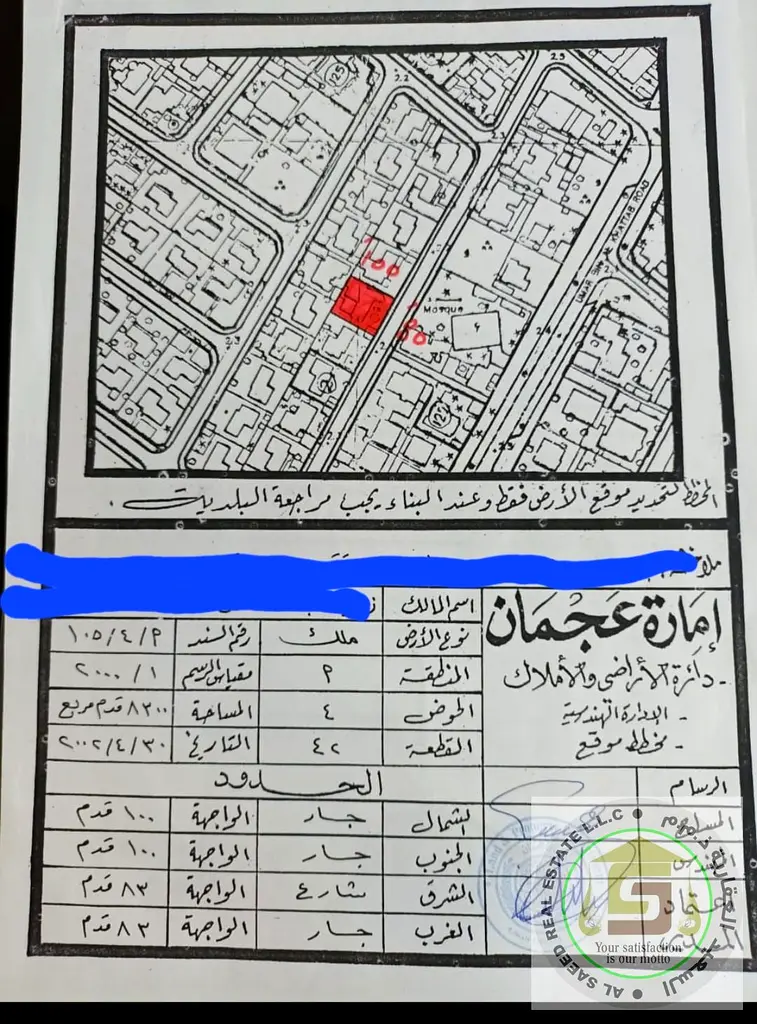 125
22
25
23
UMAR BIN AL KHATTAB ROAD
100
Mosque
83
المخطط لتحديد موقع الأرض فقط وعند البناء يجب مراجعة البلدية .
إمارة عجمان
- دائرة الأراضي والأملاك
- الإدارة الهندسية
- مخطط موقع
اسم المالك
نوع الأرض ملك رقم السند ١٠٥/٤/٢م
المنطقة ٢ مقياس الرسم ١/٢٠٠٠
الحوض ٤ المساحة ٨٣٠٠ قدم مربع
القطعة ٤٢ التاريخ ٢٠٠٢/٤/٣٠
الحدود
الشمال جار الواجهة ١٠٠ قدم
الجنوب جار الواجهة ١٠٠ قدم
الشرق شارع الواجهة ٨٣ قدم
الغرب جار الواجهة ٨٣ قدم
الرسام
AL SAEED REAL ESTATE L.L.C
Your satisfaction
is our motto